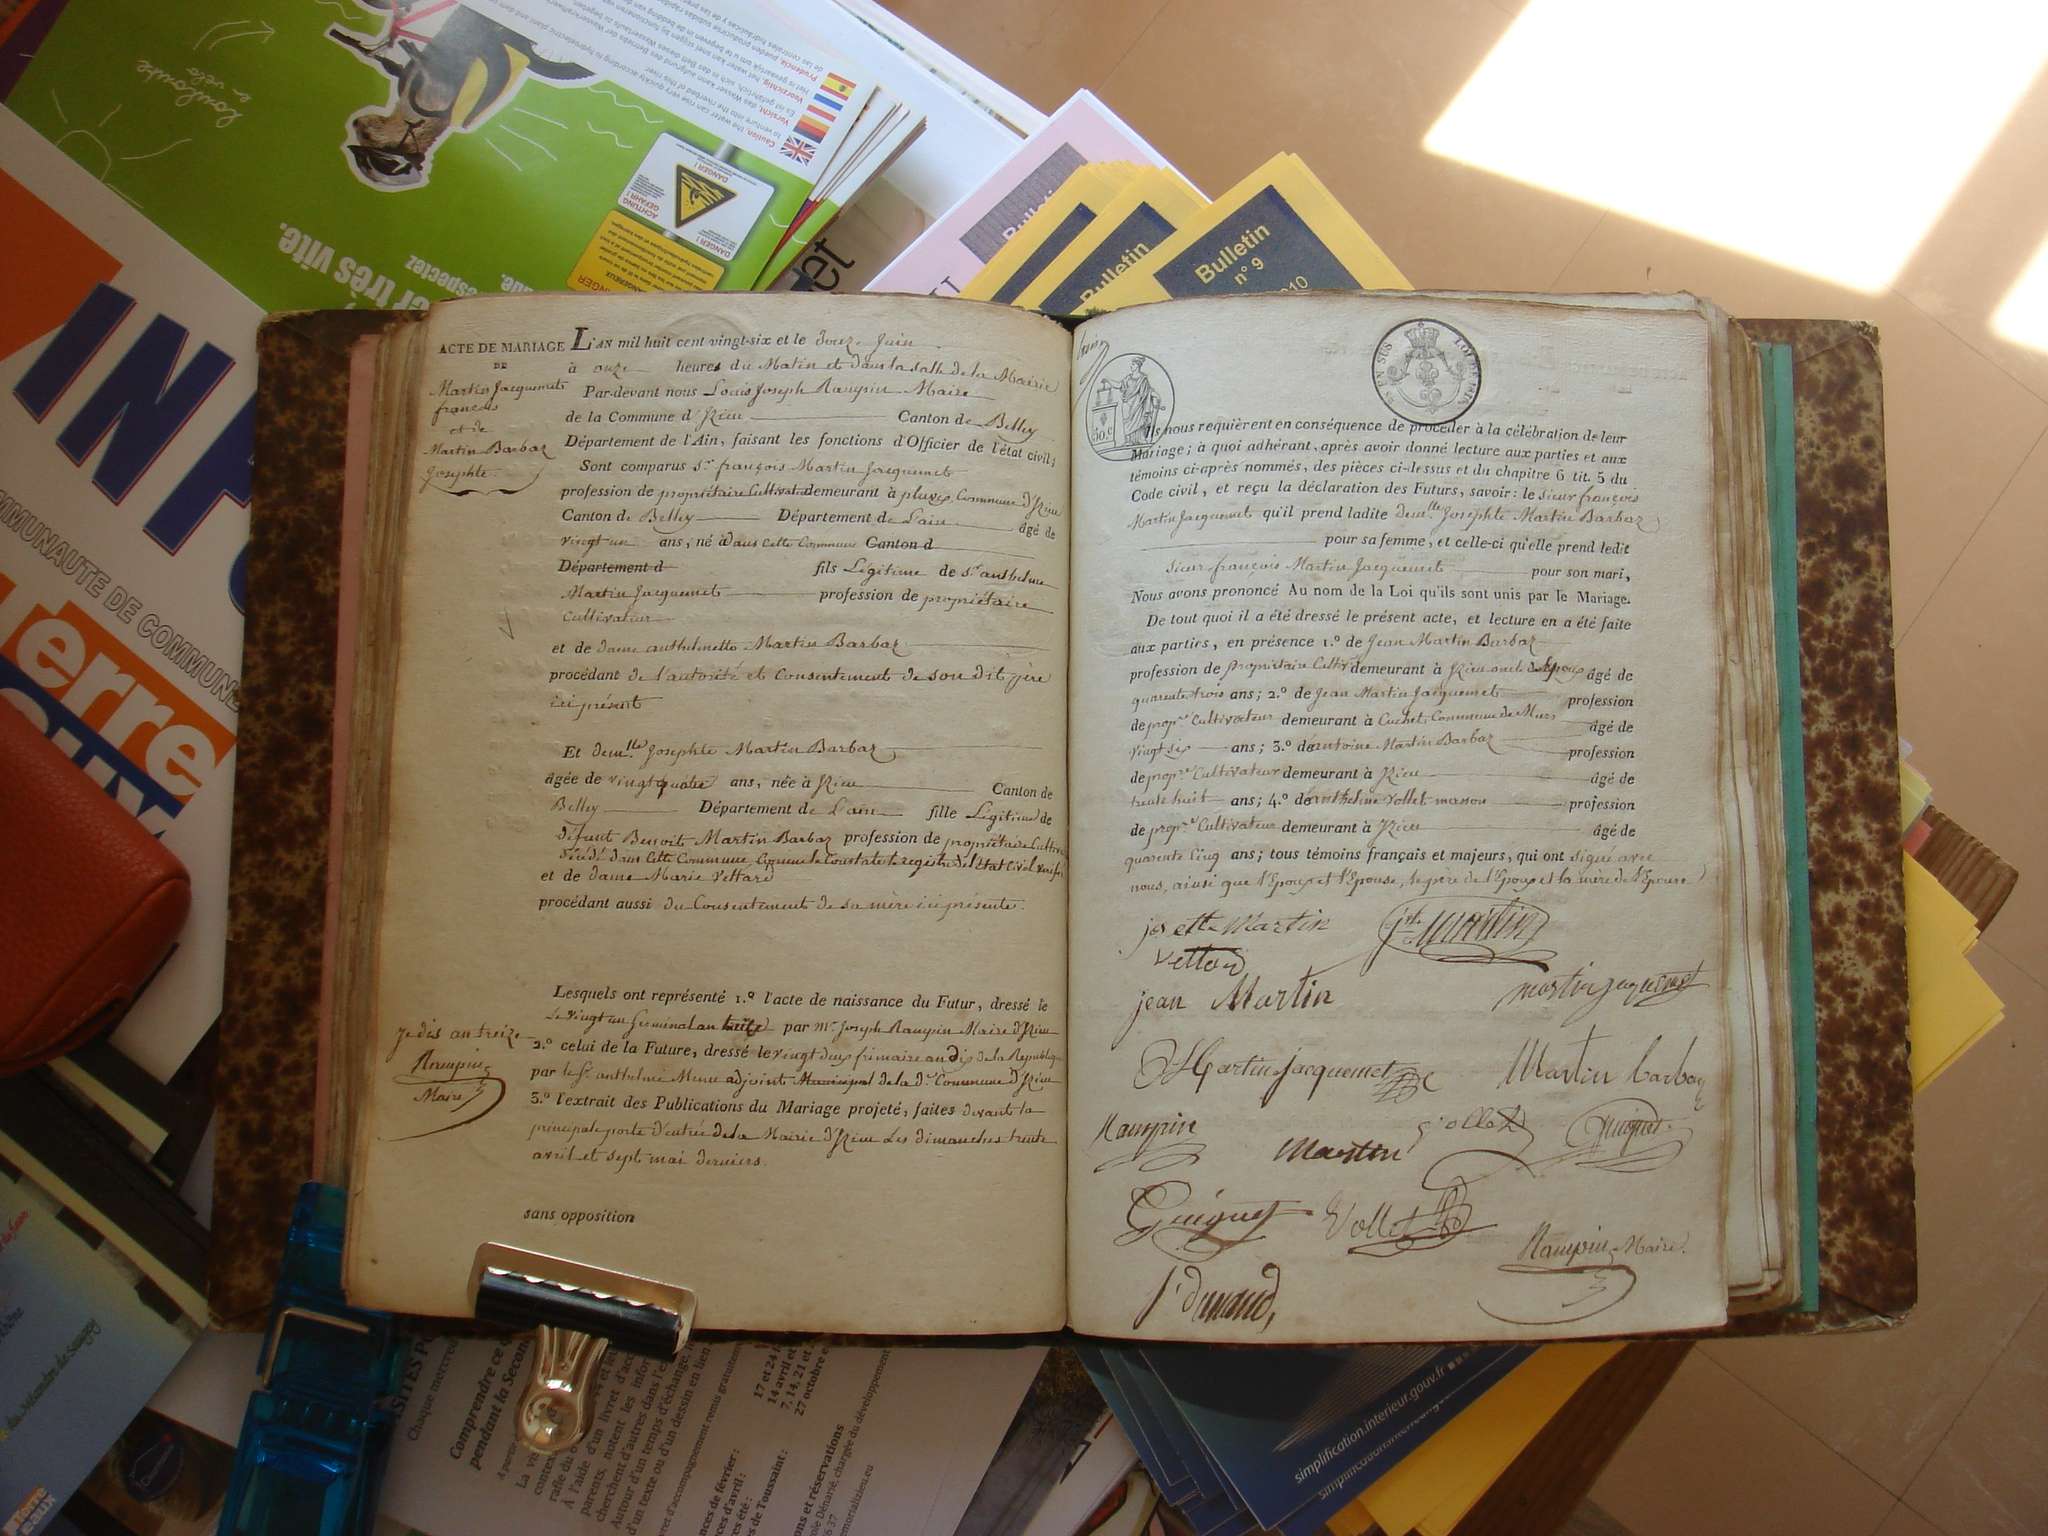 ACTE DE MARIAGE
DE
Martin Jacquemet
françois
et de
Martin Barbaz
Josephte.
L'AN mil huit cent vingt-six et le douze Juin
à onze heures du Matin et dans la salle de la Mairie
Par-devant nous Louis Joseph Rampin Maire
de la Commune d'Izieu Canton de Belley
Département de l'Ain, faisant les fonctions d'Officier de l'état civil;
Sont comparus Sr. françois Martin Jacquemet
profession de propriétaire Cultivateur demeurant à pluvis, Commune d'Izieu
Canton de Belley Département de L'ain âgé de
vingt un ans, né à dans cette Commune Canton d
Département d fils Légitime de Sr. anthelme
Martin Jacquemet profession de propriétaire
Cultivateur
et de dame anthelmette Martin Barbaz
procédant de l'autorité et Consentement de son dit père
ici présent
Et demlle. Josephte Martin Barbaz
âgée de vingt quatre ans, née à Izieu Canton de
Belley Département de L'ain fille Légitime de
défunt Benoit Martin Barbaz profession de propriétaire Cultivr
décédé dans Cette Commune, Comme le Constate le registre de l'Etat Civil
et de dame Marie Vettard
procédant aussi du Consentement de sa mère ici présente.
Lesquels ont représenté 1.° l'acte de naissance du Futur, dressé le
Le vingt un Germinal an treize par Mr. Joseph Rampin Maire d'Izieu
je dis an treize
Rampin
Maire
2.° celui de la Future, dressé le vingt deux frimaire an dix de la Republique
par le Sr. anthelme adjoint Municipal de la de. Commune d'Izieu
3.° l'extrait des Publications du Mariage projeté, faites devant la
principale porte d'entrée de la Mairie d'Izieu Les dimanches trente
avril et sept mai derniers.
sans opposition
50.c
EN SUS
LOI DE 1816
Ils nous requièrent en conséquence de procéder à la célébration de leur
Mariage; à quoi adhérant, après avoir donné lecture aux parties et aux
témoins ci-après nommés, des pièces ci-dessus et du chapitre 6 tit. 5 du
Code civil, et reçu la déclaration des Futurs, savoir: le sieur françois
Martin Jacquemet qu'il prend ladite demlle. Josephte Martin Barbaz
pour sa femme, et celle-ci qu'elle prend ledit
sieur françois Martin Jacquemet pour son mari,
Nous avons prononcé Au nom de la Loi qu'ils sont unis par le Mariage.
De tout quoi il a été dressé le présent acte, et lecture en a été faite
aux parties, en présence 1.° de Jean Martin Barbaz
profession de propriétaire Cultivr demeurant à Izieu oncle de l'Epoux âgé de
quarente trois ans; 2.° de Jean Martin Jacquemet profession
de propre. Cultivateur demeurant à Cuchet, Commune de Murs âgé de
vingt six ans; 3.° de antoine Martin Barbaz profession
de propre. Cultivateur demeurant à Izieu âgé de
trente huit ans; 4.° de anthelme Vollet masson profession
de propre. Cultivateur demeurant à Izieu âgé de
quarente Cinq ans; tous témoins français et majeurs, qui ont signé avec
nous, ainsi que l'Epoux et l'Epouse, le père de l'Epoux et la mère de l'Epouse
josette Martin
Martin
vettard
jean Martin
martin jaquemet
Martin Jacquemet
Martin barbaz
Rampin
Martin
Vollet
Guiguet
Guiguet
Vollet
Rampin Maire.
Dunand,
Bulletin
n° 9
Bulletin
toulouse
en vélo
er très vite.
spectez
DANGER!
ACHTUNG
GEFAHR!
Caution, the water can rise very quickly according to hydroelectric plant
to venture into the riverbed of this river
Vorsicht, das Wasser kann aufgrund des Betriebs der Wasserkraftwerke
Voorzichtig, het water kan snel stijgen
Prudencia
INF
MMUNAUTE DE COMMUNE
erre
Comprendre ce q
pendant la Secon
Chaque mercred
17 et 24
14 avril et
7, 14, 21 et
27 octobre e
nces de février :
d'avril :
es de Toussaint :
ons et réservations
chargée du développement
simplification.interieur.gouv.fr
terre
eaux